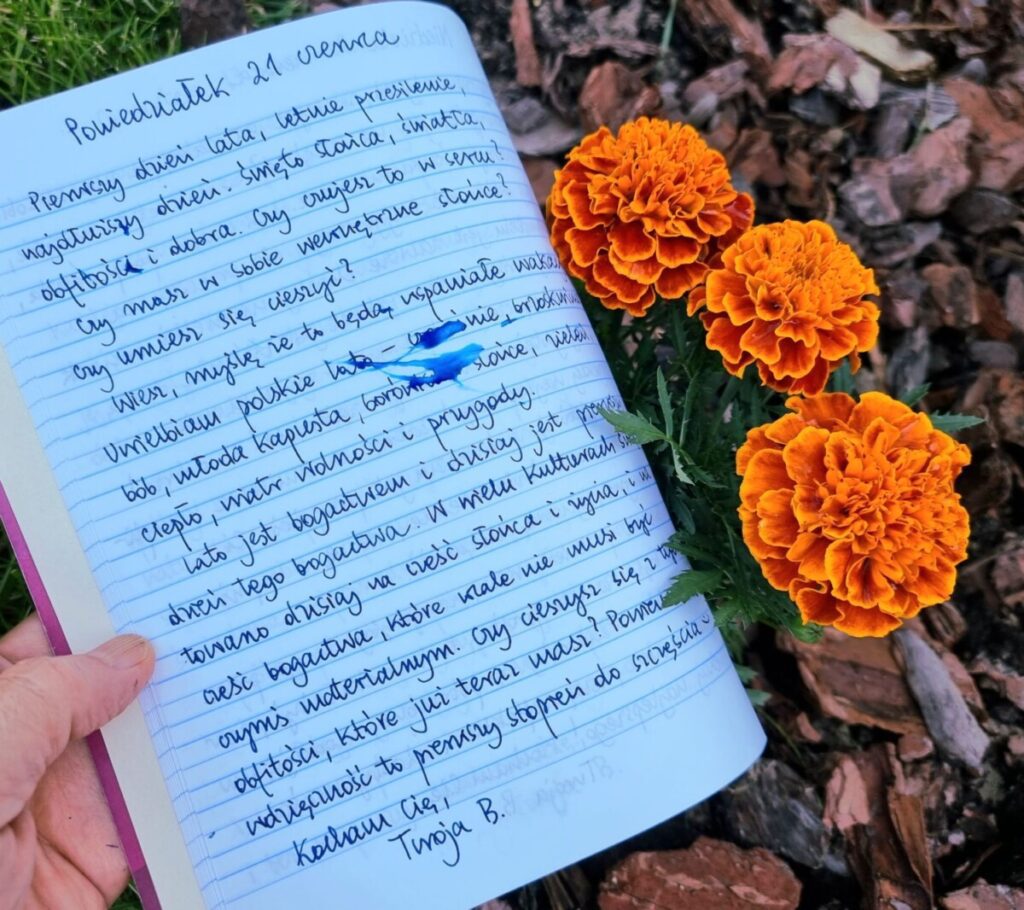 Poniedziałek 21 czerwca
Pierwszy dzień lata, letnie przesilenie,
najdłuższy dzień. Święto słońca, światła,
obfitości i dobra. Czy czujesz to w sercu?
Czy masz w sobie wewnętrzne słońce?
Czy umiesz się cieszyć?
Wiesz, myślę, że to będą wspaniałe waka
Uwielbiam polskie lato – nie, brzoskwi
bób, młoda kapusta, borów słońce, zieleń
ciepło, wiatr wolności i przygody.
Lato jest bogactwem i dzisiaj jest pierwszy
dzień tego bogactwa. W wielu kulturach
towano dzisiaj na cześć słońca i życia, i
cześć bogactwa, które wcale nie musi być
czymś materialnym. Czy cieszysz się z
obfitości, które już teraz masz?
wdzięczność to pierwszy stopień do szczęścia
Kocham Cię,
Twoja B.